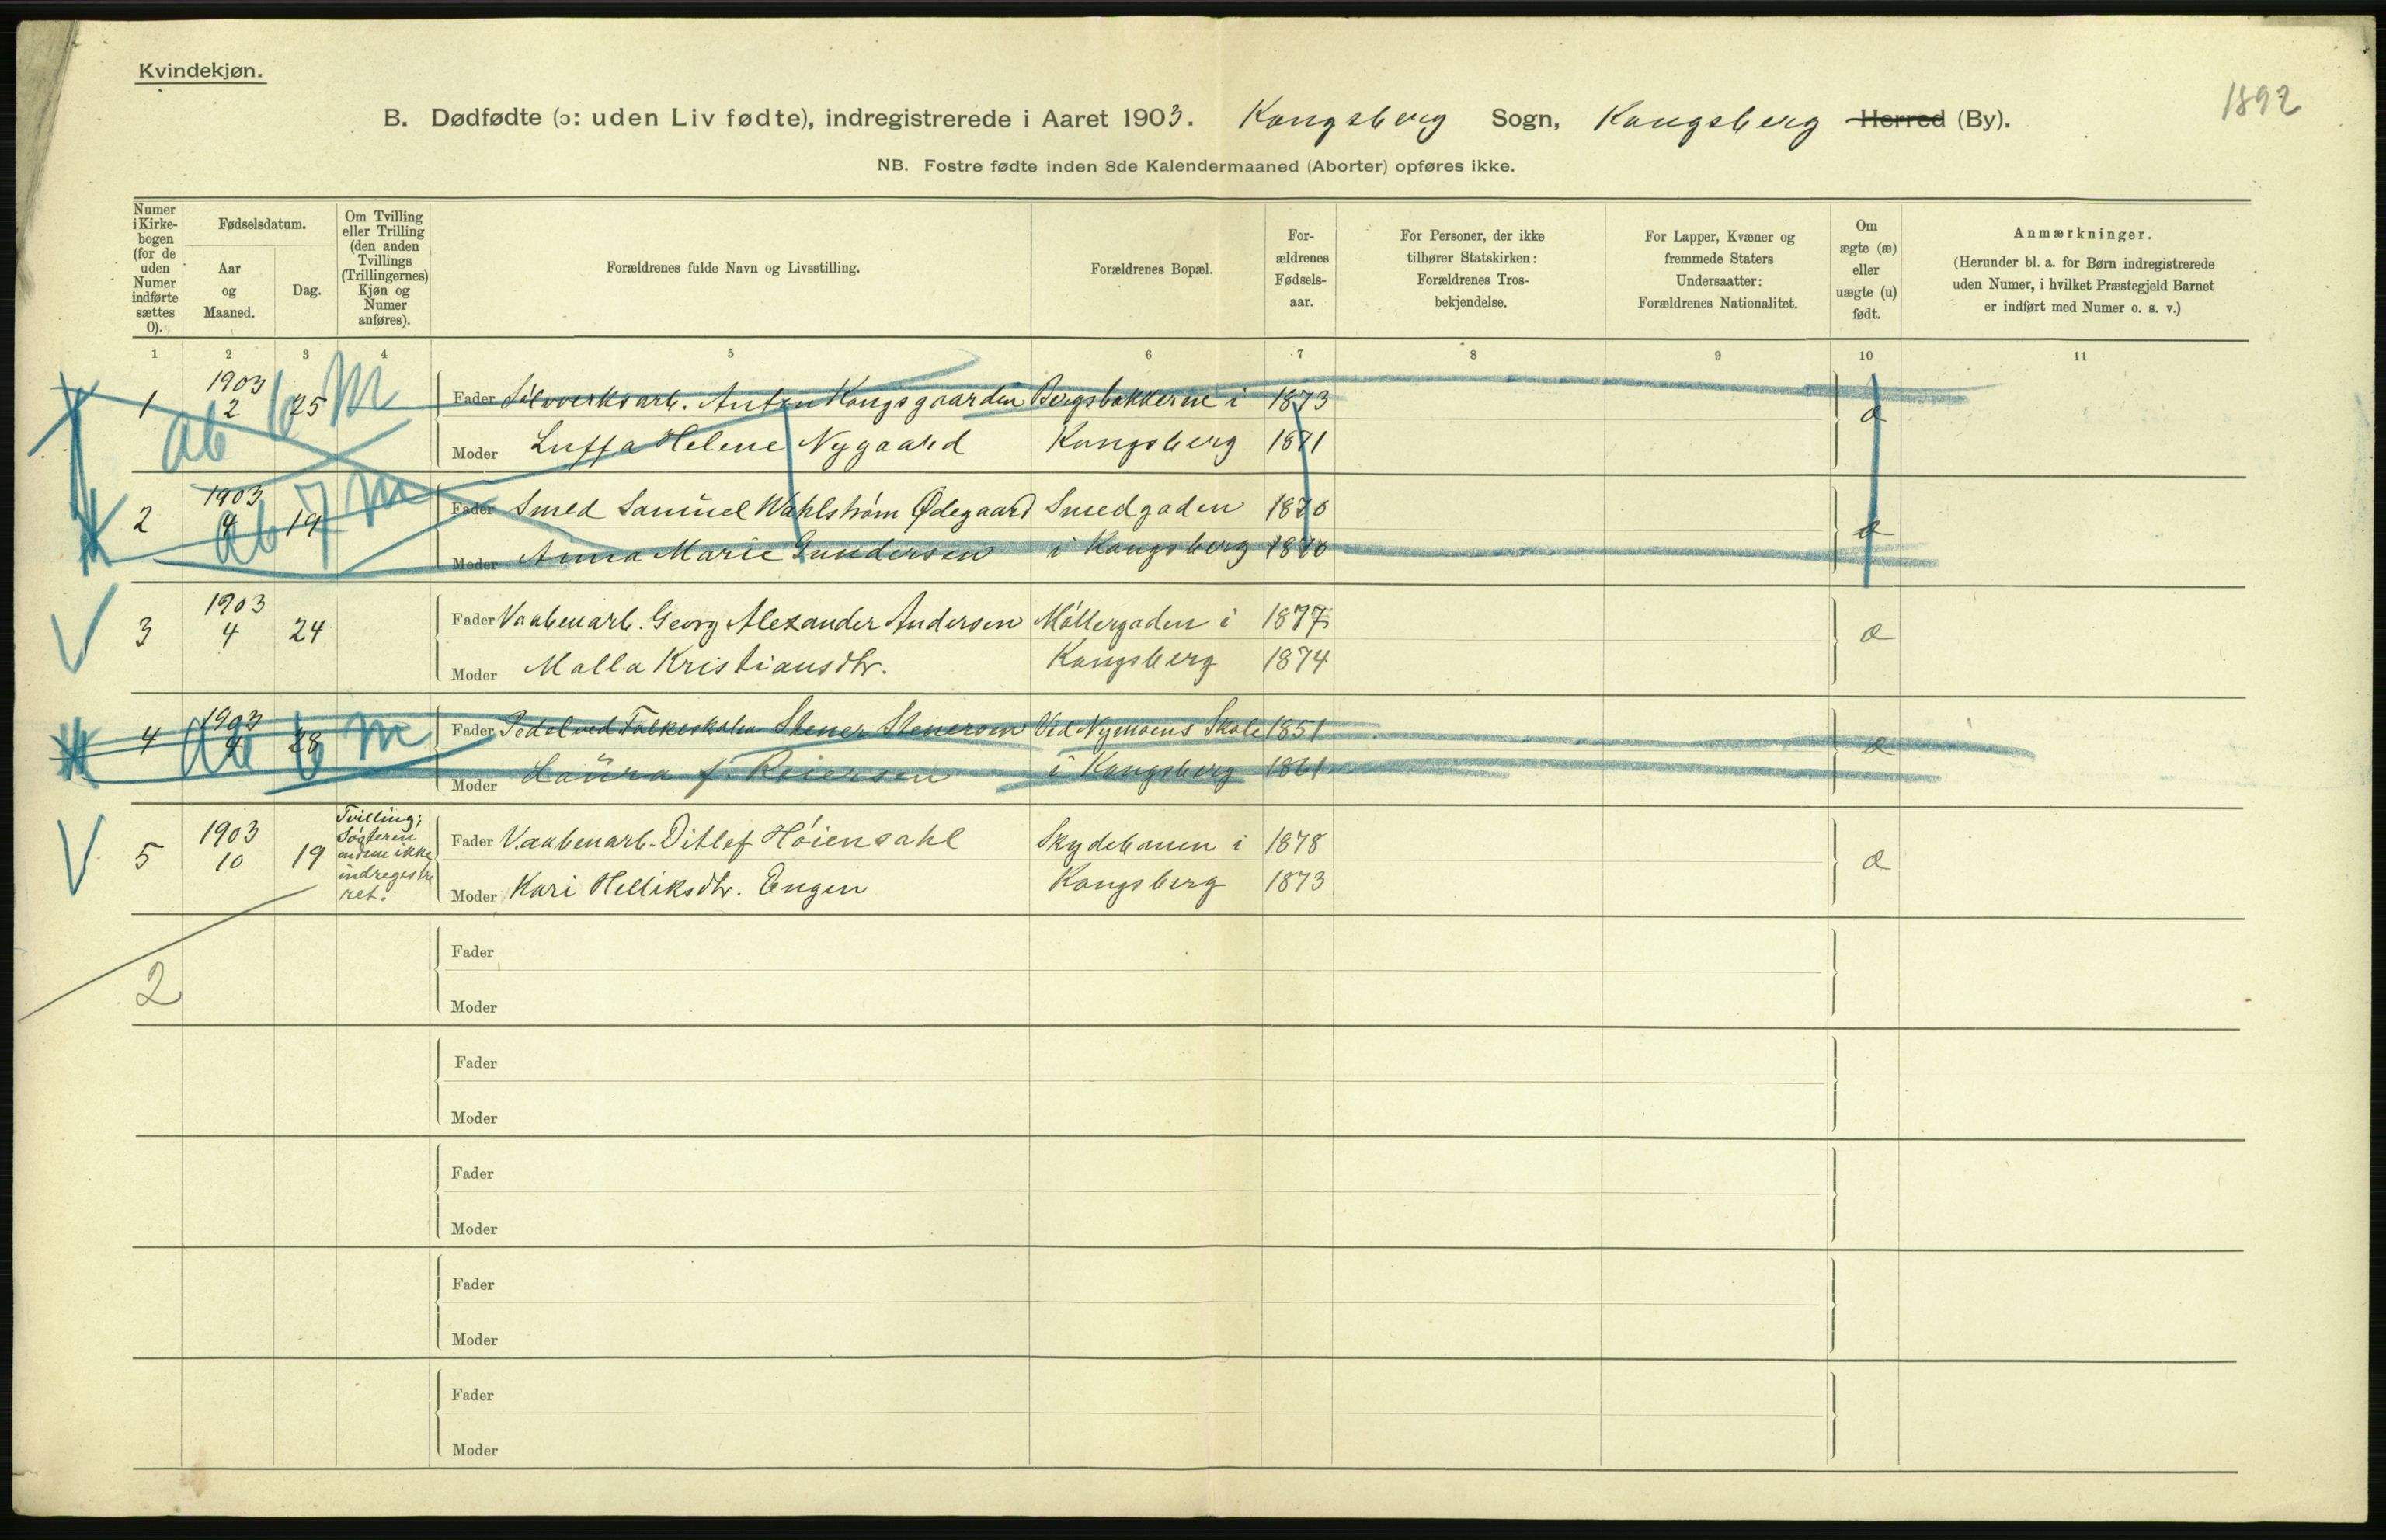 Kvindekjøn.
1892
B. Dødfødte (ɔ: uden Liv fødte), indregistrerede i Aaret 1903. Kongsberg Sogn, Kongsberg Herred (By).
NB. Fostre fødte inden 8de Kalendermaaned (Aborter) opføres ikke.
Numer i Kirke-bogen (for de uden Numer indførte sættes 0).
Fødselsdatum.
Aar og Maaned.
Dag.
Om Tvilling eller Trilling (den anden Tvillings (Trillingernes) Kjøn og Numer anføres).
Forældrenes fulde Navn og Livsstilling.
Forældrenes Bopæl.
For-ældrenes Fødsels-aar.
For Personer, der ikke tilhører Statskirken: Forældrenes Tros-bekjendelse.
For Lapper, Kvæner og fremmede Staters Undersaatter: Forældrenes Nationalitet.
Om ægte (æ) eller uægte (u) født.
Anmærkninger.
(Herunder bl. a. for Børn indregistrerede uden Numer, i hvilket Præstegjeld Barnet er indført med Numer o. s. v.)
1 2 3 4 5 6 7 8 9 10 11
1 1903 2 25 Fader Sølvverksarb. Anton Kongsgaarden Bergsbakkerne i 1873 æ
ab 6 m
Moder Luffa Helene Nygaard Kongsberg 1871
2 1903 4 19 Fader Smed Samuel Wahlstrøm Ødegaard Smedgaden 1870 æ
ab 7 m
Moder Anna Marie Gundersen i Kongsberg 1870
3 1903 4 24 Fader Vaabenarb. Georg Alexander Andersen Møllergaden i 1877 æ
Moder Malla Kristiansdtr. Kongsberg 1874
4 1903 4 28 Fader Pedel ved Folkeskolen Stener Stenersen Ved Nymoens Skole 1851 æ
ab 6 m
Moder Laura f. Reiersen i Kongsberg 1861
5 1903 10 19 Tvilling; Søsteren endnu ikke indregistreret. Fader Vaabenarb. Ditlef Høiensahl Skydebanen i 1878 æ
Moder Kari Helliksdtr. Engen Kongsberg 1873
2
Fader
Moder
Fader
Moder
Fader
Moder
Fader
Moder
Fader
Moder